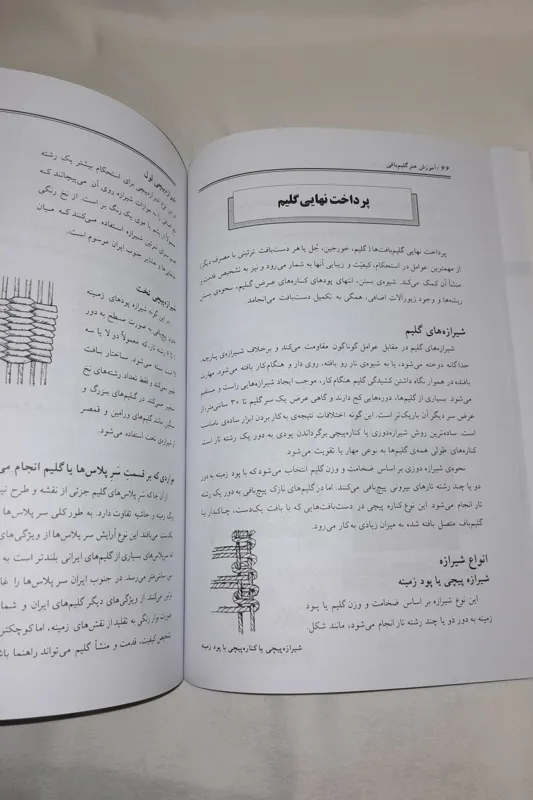 ۶۶ / آموزش هنر گلیم‌بافی
پرداخت نهایی گلیم
پرداخت نهایی گلیم‌بافت‌ها (گلیم، خورجین، جُل یا هر دست‌بافت تزئینی با مصرف دیگر)
از مهمترین عوامل در استحکام، کیفیّت و زیبایی آنها به شمار می‌رود و نیز به تشخیص قدمت و
منشأ آن کمک می‌کند. شیوه‌ی بستن، انتهای پودهای کناره‌های عرض گلیم، نحوه‌ی بستن
ریشه‌ها و وجود زیورآلات اضافی، همگی به تکمیل دست‌بافت می‌انجامد.
شیرازه‌های گلیم
شیرازه‌های گلیم در مقابل عوامل گوناگون مقاومت می‌کند و برخلاف شیرازه‌ی پارچه،
جداگانه دوخته می‌شود، یا به شیوه‌ی تار رو بافته، روی دار و هنگام کار بافته می‌شود. مهارت
بافنده در هموار نگاه داشتن کشیدگی گلیم هنگام کار، موجب ایجاد شیرازه‌هایی راست و مستقیم
می‌شود. بسیاری از گلیم‌ها، دوره‌هایی کج دارند و گاهی عرض یک سر گلیم تا ۳۰ سانتی‌متر از
عرض سر دیگر آن باریک‌تر است. این گونه اختلافات نتیجه‌ی به‌کار بردن ابزار ساده‌ی نامناسب
است. ساده‌ترین روش شیرازه‌دوزی یا کناره‌پیچی برگرداندن پودی به دور یک رشته تار است
کناره‌های طولی همه‌ی گلیم‌ها به نوعی مهار یا تقویت می‌شود.
نحوه‌ی شیرازه دوزی بر اساس ضخامت و وزن گلیم انتخاب می‌شود که با پود زمینه به دور
دو یا چند رشته تارهای بیرونی پیچ‌بافی می‌کنند. اما در گلیم‌های نازک پیچ‌بافی به دور یک رشته
تار انجام می‌شود. این نوع کناره پیچی در دست‌بافت‌هایی که با بافت یک‌دست، چاک‌دار یا
گلیم‌باف متصل بافته شده به میزان زیادی به‌کار می‌رود.
انواع شیرازه
شیرازه پیچی با پود زمینه
این نوع شیرازه بر اساس ضخامت و وزن گلیم با پود
زمینه به دور دو یا چند رشته تار انجام می‌شود، مانند شکل.
شیرازه‌پیچی یا کناره‌پیچی با پود زمینه
شیرازه‌پیچی برای استحکام بیشتر یک رشته
موازات شیرازه روی آن می‌پیچانند که
معمولاً از پشم یا موی یک رنگ بز است. از نخ رنگی
برای تزئین شیرازه استفاده می‌کنند که میان
عشایر جنوب ایران مرسوم است.
شیرازه‌پیچی تخت
در این گونه شیرازه پودهای زمینه
به صورت مسطح به دور
رشته تار، که معمولاً دو لا یا سه
لا است بسته می‌شود. ساختار بافت
تغییر نمی‌کند و فقط تعداد رشته‌های نخ
تغییر می‌کند در گلیم‌های بزرگ و
سنگین مانند گلیم‌های ورامین و قمصر
از شیرازه‌ی تخت استفاده می‌شود.
مواردی که بر قسمتِ سَر پلاس‌ها یا گلیم انجام می
از آن جا که سر پلاس‌های گلیم جزئی از نقشه و طرح
حاشیه تفاوت دارد. به طور کلی سر پلاس‌ها
بافت می‌یابد. این نوع آرایش سر پلاس‌ها از ویژگی‌های
اما سرپلاس‌های بسیاری از گلیم‌های ایرانی بلندتر است به
سانتی‌متر می‌رسد. در جنوب ایران سر پلاس‌ها را
تزئین می‌کنند. از ویژگی‌های دیگر گلیم‌های ایران و
صورت نوار رنگی به تقلید از نقش‌های زمینه، اما کوچکتر
تشخیص کیفیت، قدمت و منشأ گلیم می‌تواند راهنما